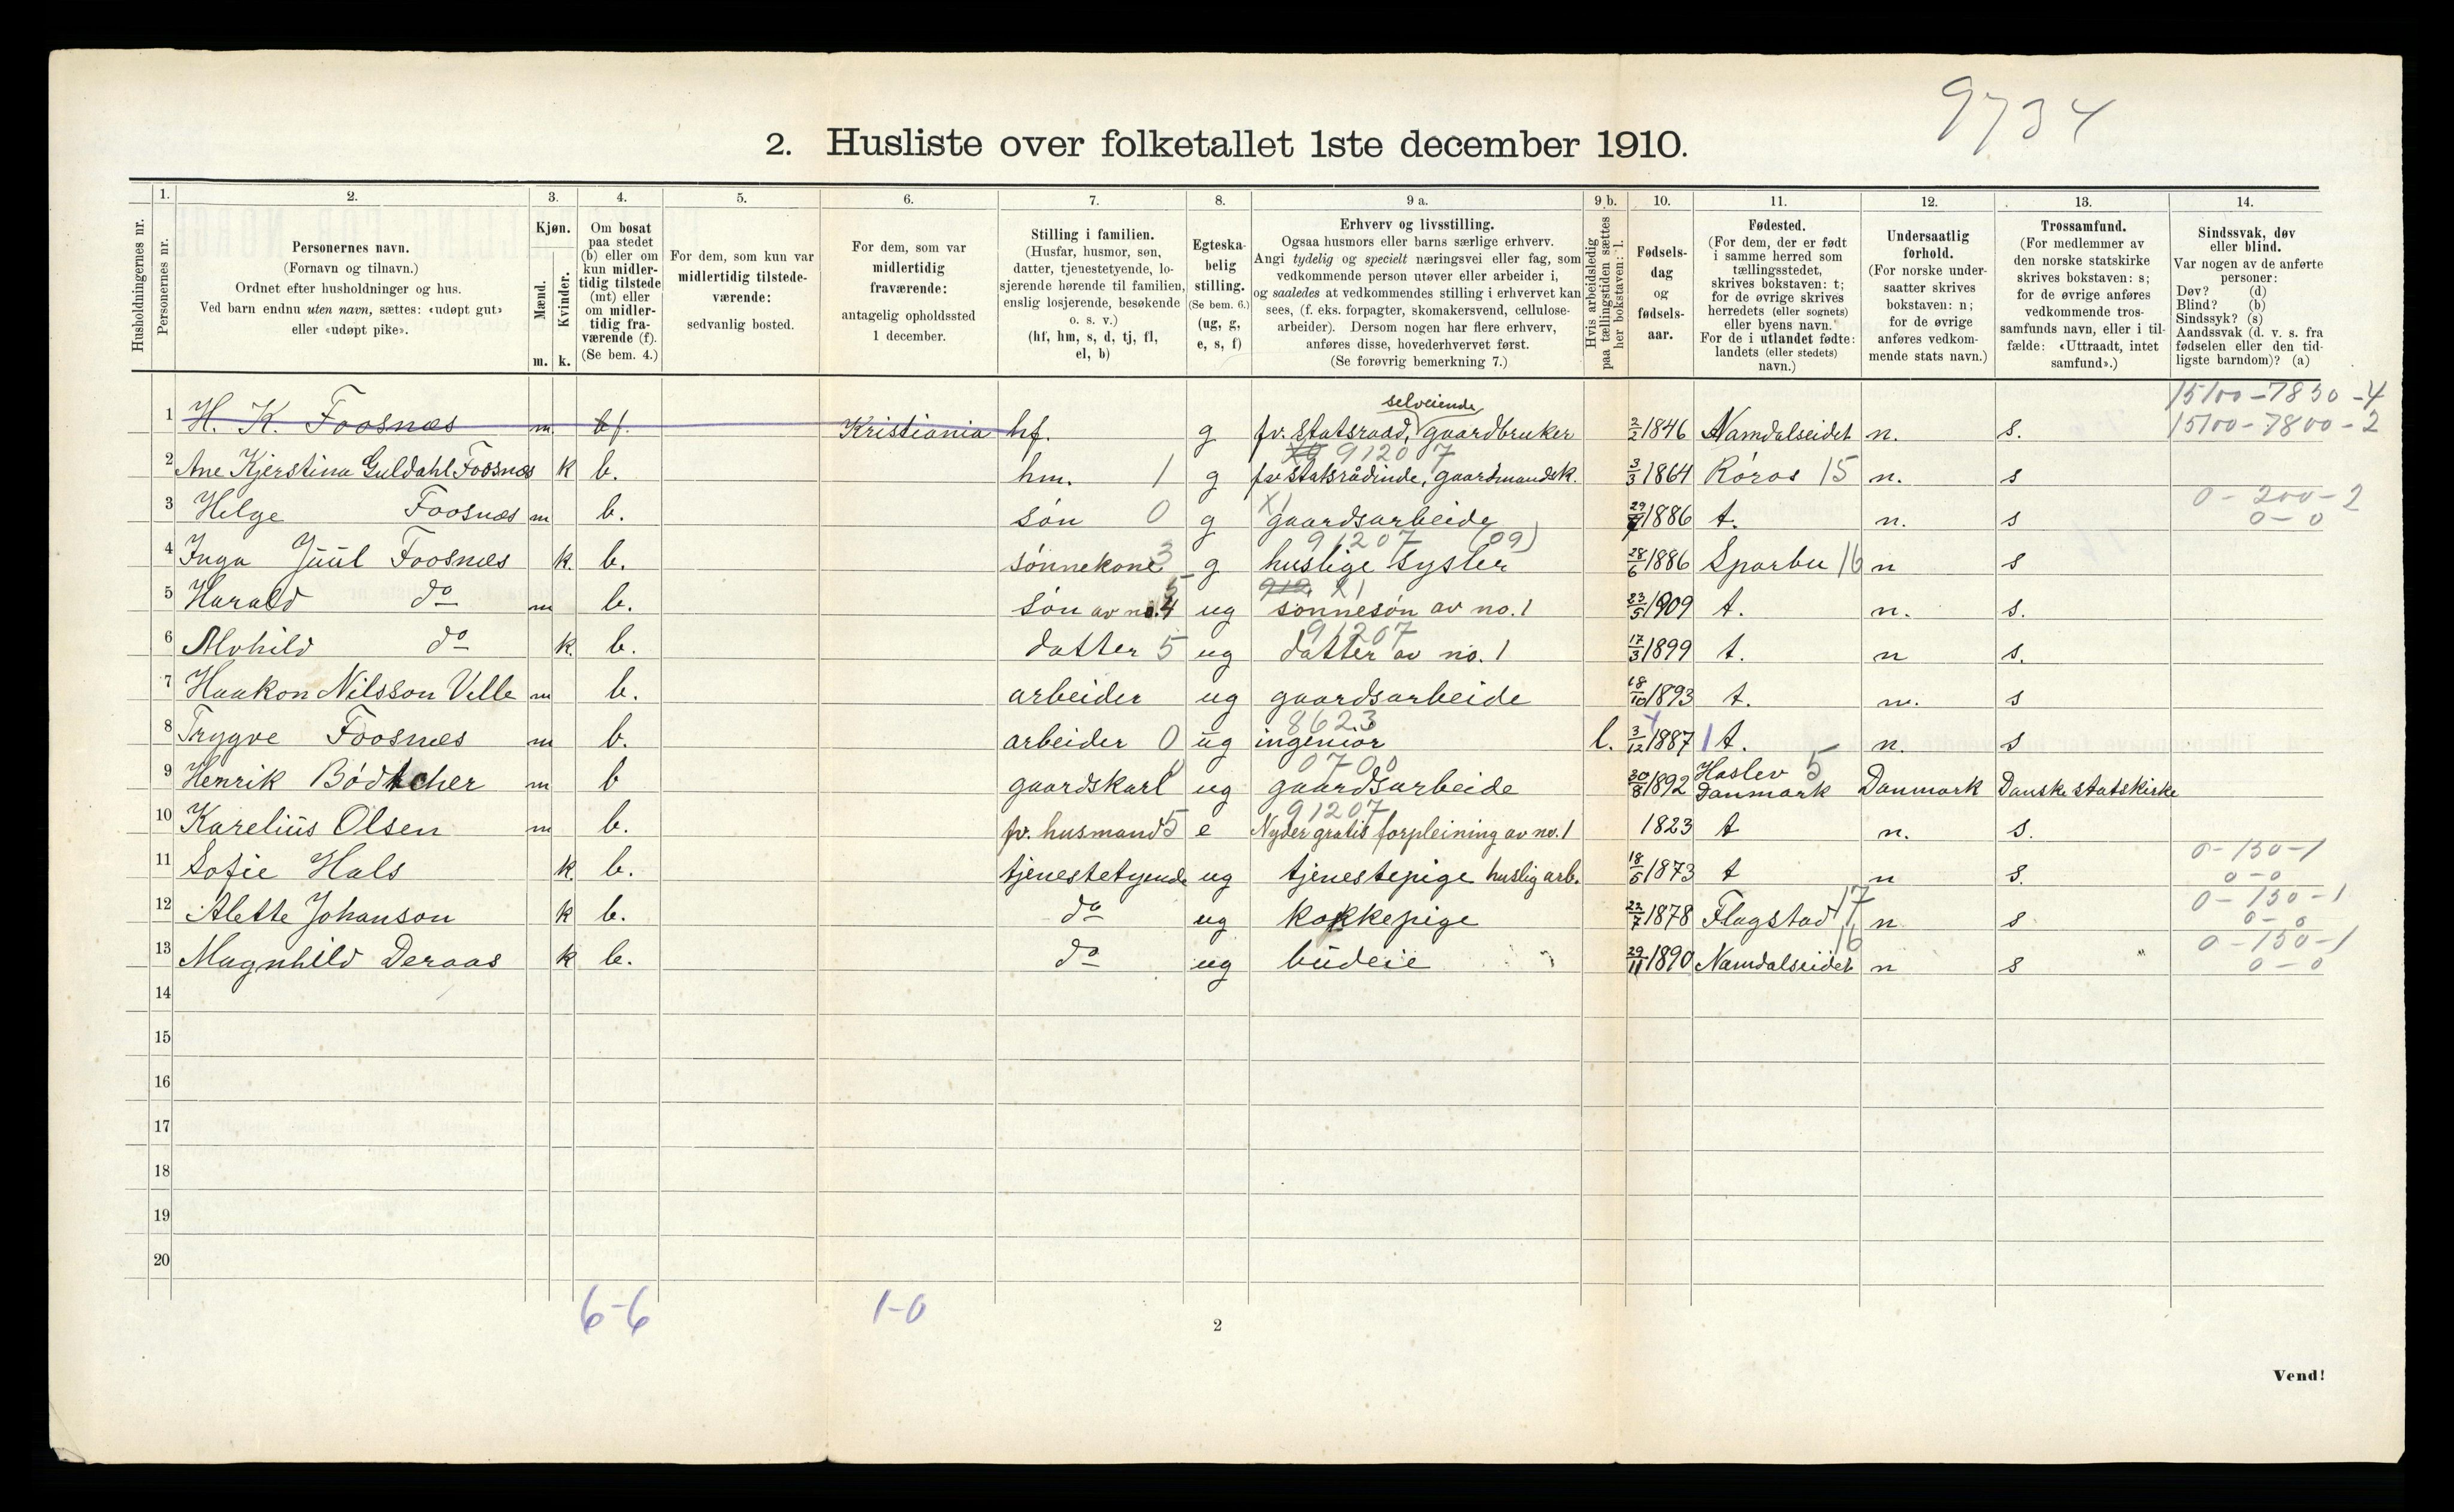 9734
2. Husliste over folketallet 1ste december 1910.
Husholdningernes nr.
1.
Personernes nr.
2.
Personernes navn.
(Fornavn og tilnavn.)
Ordnet efter husholdninger og hus.
Ved barn endnu uten navn, sættes: «udøpt gut»
eller «udøpt pike».
3.
Kjøn.
Mænd.
Kvinder.
m. k.
4.
Om bosat
paa stedet
(b) eller om
kun midler-
tidig tilstede
(mt) eller
om midler-
tidig fra-
værende (f).
(Se bem. 4.)
5.
For dem, som kun var
midlertidig tilstede-
værende:
sedvanlig bosted.
6.
For dem, som var
midlertidig
fraværende:
antagelig opholdssted
1 december.
7.
Stilling i familien.
(Husfar, husmor, søn,
datter, tjenestetyende, lo-
sjerende hørende til familien,
enslig losjerende, besøkende
o. s. v.)
(hf, hm, s, d, tj, fl,
el, b)
8.
Egteska-
belig
stilling.
(Se bem. 6.)
(ug, g,
e, s, f)
9 a.
Erhverv og livsstilling.
Ogsaa husmors eller barns særlige erhverv.
Angi tydelig og specielt næringsvei eller fag, som
vedkommende person utøver eller arbeider i,
og saaledes at vedkommendes stilling i erhvervet kan
sees, (f. eks. forpagter, skomakersvend, cellulose-
arbeider). Dersom nogen har flere erhverv,
anføres disse, hovederhvervet først.
(Se forøvrig bemerkning 7.)
9 b.
Hvis arbeidsledig
paa tællingstiden sættes
her bokstaven: l.
10.
Fødsels-
dag
og
fødsels-
aar.
11.
Fødested.
(For dem, der er født
i samme herred som
tællingsstedet,
skrives bokstaven: t;
for de øvrige skrives
herredets (eller sognets)
eller byens navn.
For de i utlandet fødte:
landets (eller stedets)
navn.)
12.
Undersaatlig
forhold.
(For norske under-
saatter skrives
bokstaven: n;
for de øvrige
anføres vedkom-
mende stats navn.)
13.
Trossamfund.
(For medlemmer av
den norske statskirke
skrives bokstaven: s;
for de øvrige anføres
vedkommende tros-
samfunds navn, eller i til-
fælde: «Uttraadt, intet
samfund».)
14.
Sindssvak, døv
eller blind.
Var nogen av de anførte
personer:
Døv? (d)
Blind? (b)
Sindssyk? (s)
Aandssvak (d. v. s. fra
fødselen eller den tid-
ligste barndom)? (a)
15100-7830-4
selveiende
1 H. K. Foosnæs m. bf. Kristiania hf. g fv. Statsraad, gaardbruker 2/2 1846 Namdalseidet n. s. 15100-7800-2
91207
2 Ane Kjerstina Guldahl Foosnæs k b. hm. 1 g fv statsrådinde, gaardmandsk. 3/3 1864 Röros 15 n. s
0-200-2
3 Helge Foosnæs m b. sön 0 g gaardsarbeide 1886 t. n. s 0-0
91207 (09)
4 Inga Juul Foosnæs k. b. sönnekone 3 g huslige sysler 28/6 1886 Sparbu 16 n s
5 Harald do m b. sön av no. 4 5 ug sönnesön av no. 1 23/5 1909 t. n. s.
91207
6 Alvhild do k. b. datter 5 ug datter av no. 1 17/3 1899 t. n s.
7 Haakon Nilsson Velle m b. arbeider ug gaardsarbeide 18/10 1893 t. n. s
8623
8 Trygve Foosnæs m b. arbeider 0 ug ingeniör l. 3/12 1887 t. n. s
0700
9 Henrik Bödtcher m b gaardskarl ug gaardsarbeide 30/8 1892 Haslev 5 Danmark Danmark Danske statskirke
91207
10 Karelius Olsen m b. fv. husmand 5 e Nyder gratis forpleining av no. 1 1823 t n. s.
0-150-1
11 Sofie Hals k. b. tjenestetyende ug tjenestepige huslig arb. 18/5 1873 t n s. 0-0
0-150-1
12 Alette Johanson k b. do ug kokkepige 22/7 1878 Flagstad 17 n s 0-0
0-150-1
13 Magnhild Deraas k b. do ug budeie 29/11 1890 Namdalseidet 16 n s 0-0
14
15
16
17
18
19
20
6-6 1-0
2
Vend!